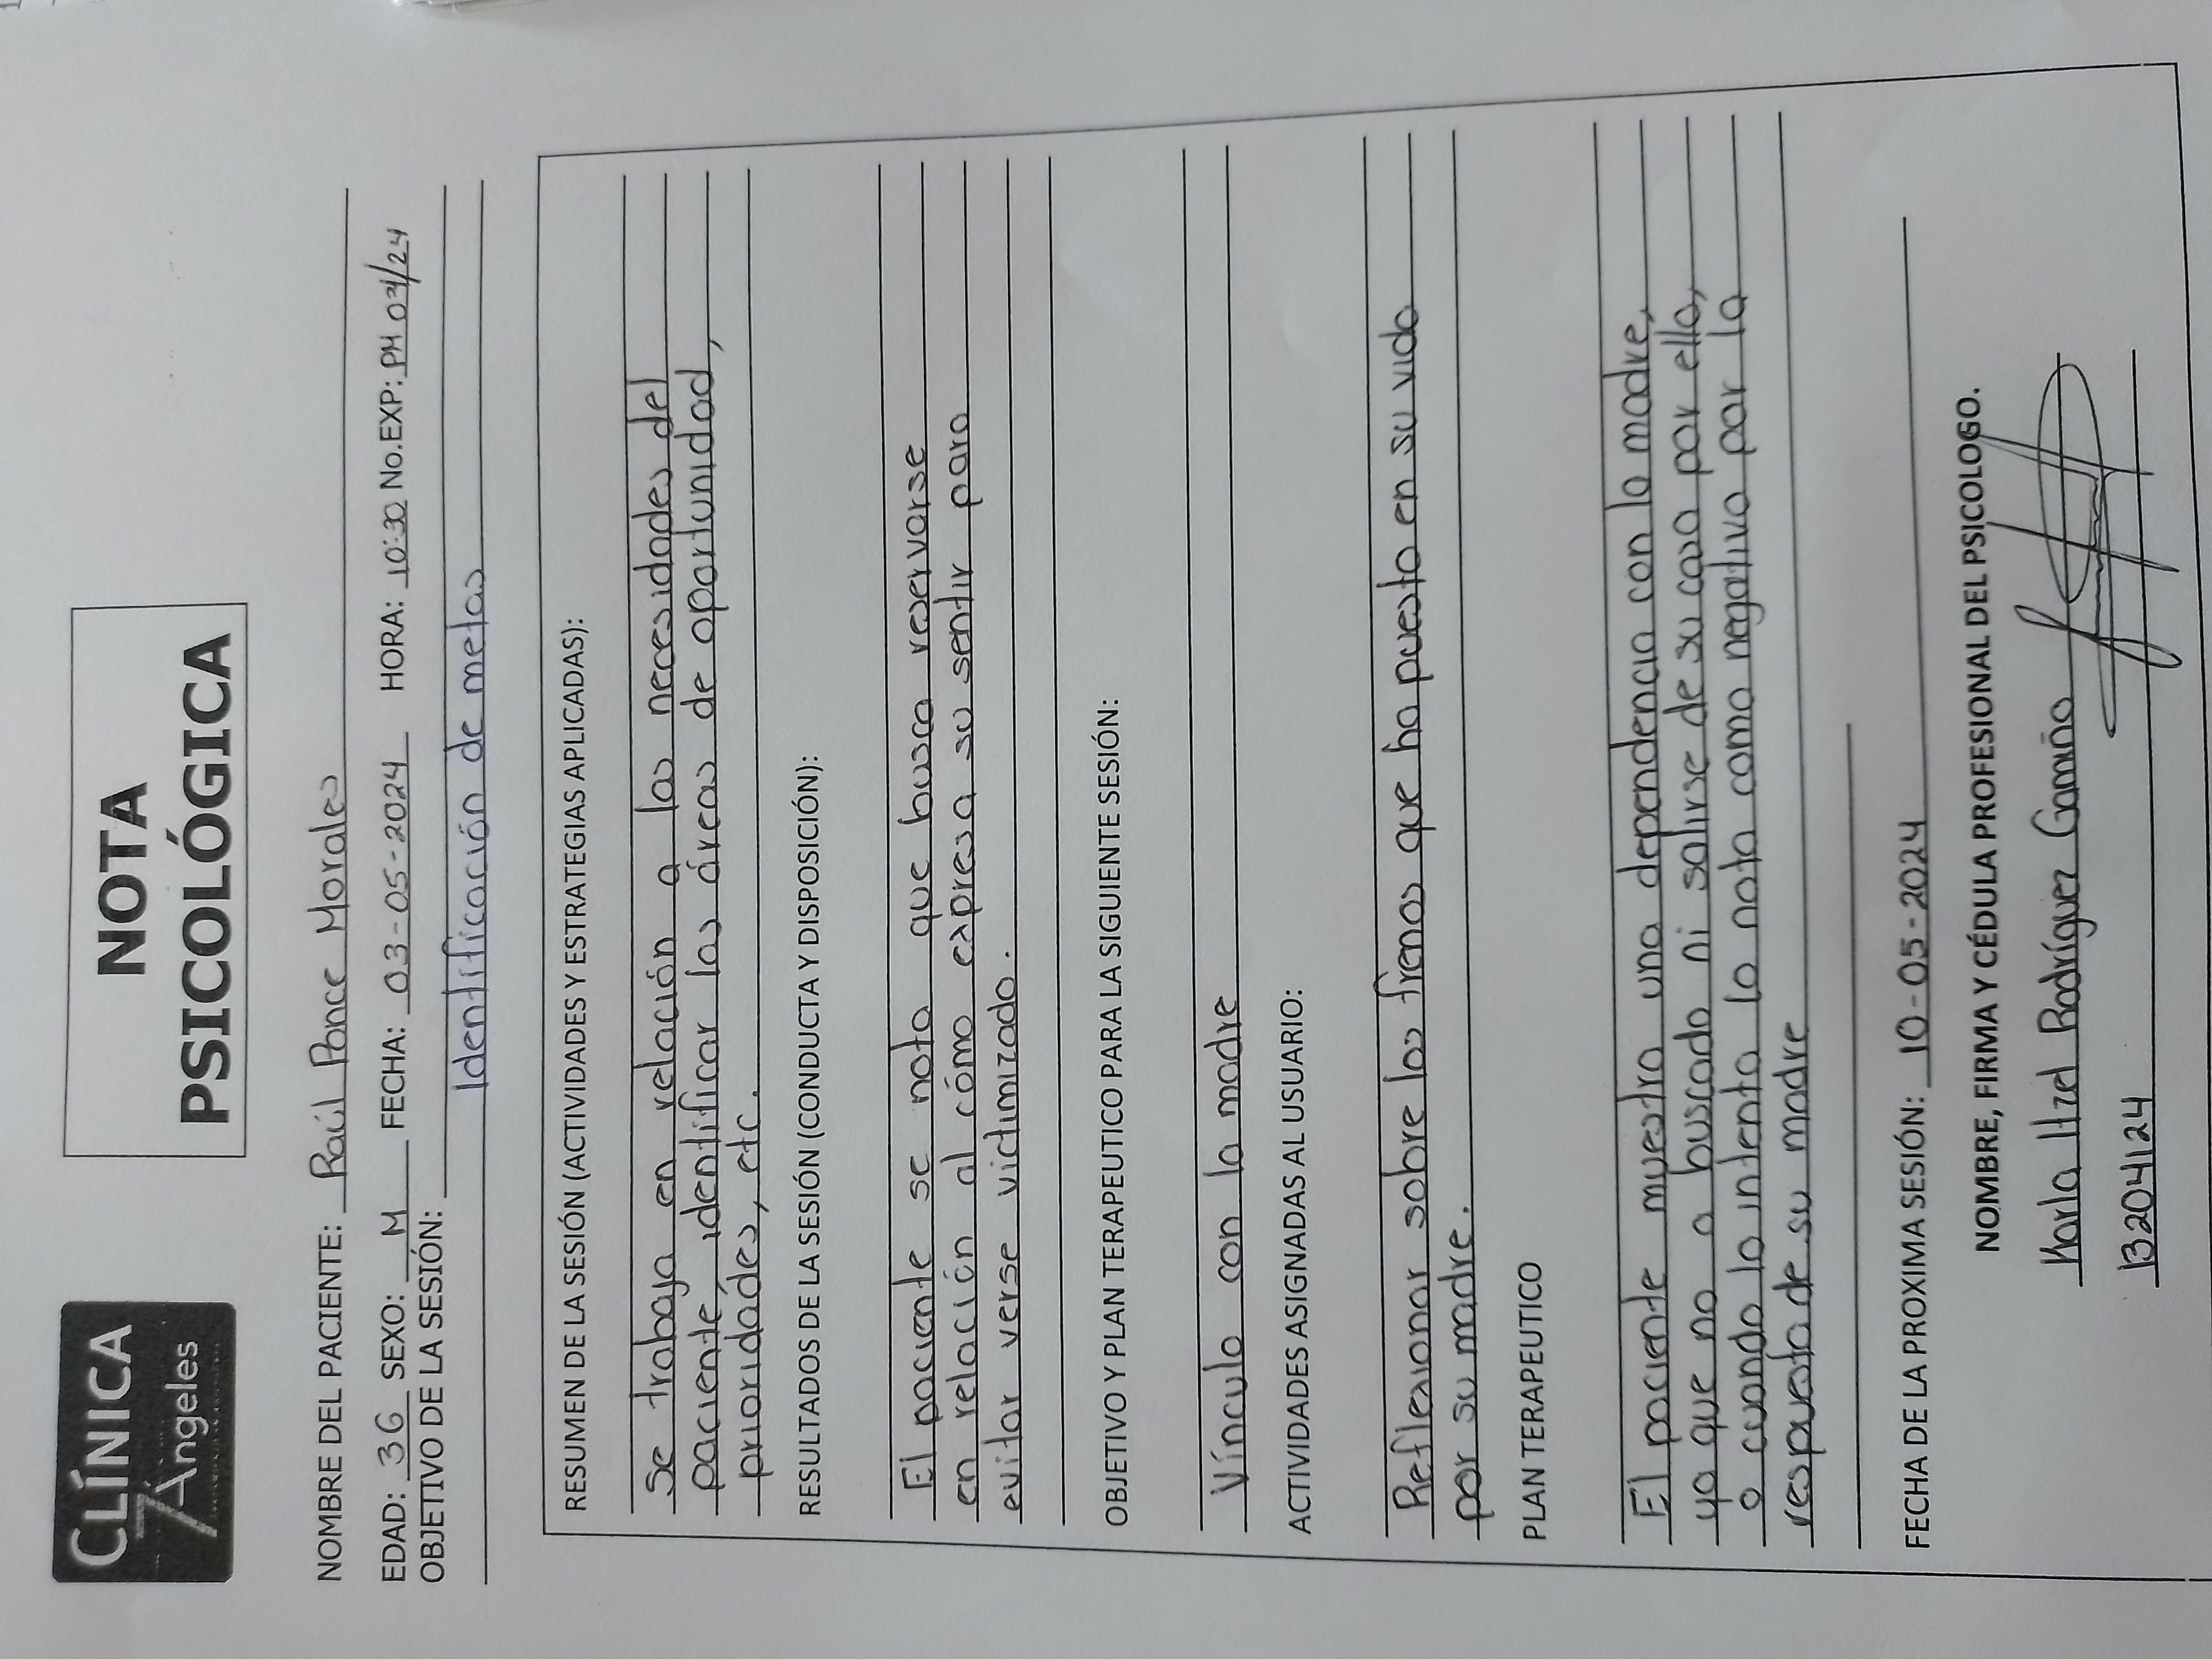 CLÍNICA
7 Ángeles
NOTA
PSICOLÓGICA
NOMBRE DEL PACIENTE: Raúl Ponce Morales
EDAD: 36 SEXO: M FECHA: 03-05-2024 HORA: 10:30 No.EXP: PM 04/24
OBJETIVO DE LA SESIÓN:
Identificación de metas
RESUMEN DE LA SESIÓN (ACTIVIDADES Y ESTRATEGIAS APLICADAS):
se trabaja en relación a las necesidades del
paciente, identificar las áreas de oportunidad,
prioridades, etc.
RESULTADOS DE LA SESIÓN (CONDUCTA Y DISPOSICIÓN):
El paciente se nota que busca reservarse
en relación al cómo expresa su sentir para
evitar verse victimizado.
OBJETIVO Y PLAN TERAPEUTICO PARA LA SIGUIENTE SESIÓN:
Vínculo con la madre
ACTIVIDADES ASIGNADAS AL USUARIO:
Reflexionar sobre los frenos que ha puesto en su vida
por su madre.
PLAN TERAPEUTICO
El paciente muestra una dependencia con la madre,
ya que no a buscado ni salirse de su casa por ella,
o cuando lo intenta lo nota como negativo por la
respuesta de su madre
FECHA DE LA PROXIMA SESIÓN: 10-05-2024
NOMBRE, FIRMA Y CÉDULA PROFESIONAL DEL PSICOLOGO.
Karla Itzel Rodríguez Gamiño
13204124